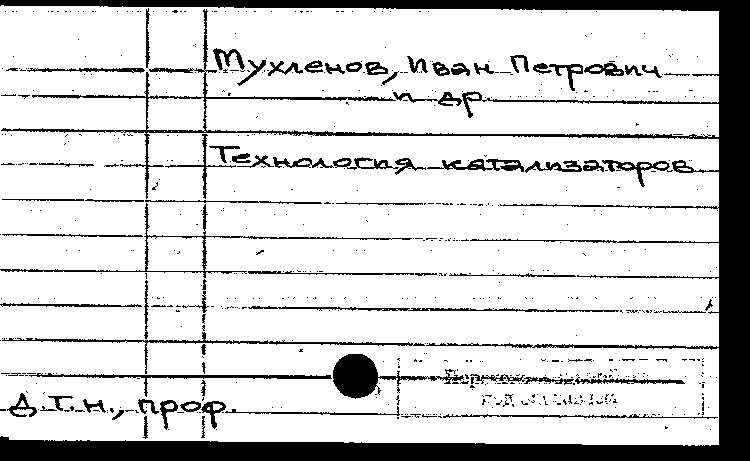 Мухленов, Иван Петрович
и др.
Технология катализаторов
Д.т.н., проф.